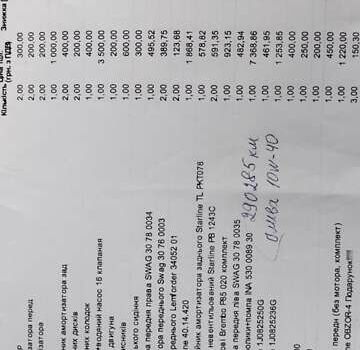 Кількість Ціна Знижка
(грн. з ПДВ)
р 2,00 300,00
затора перед 2,00 200,00
затора 2,00 200,00
1,00 1 000,00
ник амортизатора зад 1,00 400,00
них дисків 2,00 200,00
них колодок 1,00 400,00
насос 16 клапаная 1,00 3 500,00
двигуна 1,00 200,00
ісників 1,00 600,00
ького сидіння 1,00 300,00
ра передня права SWAG 30 78 0034 1,00 495,52
ора переднього Swag 30 76 0003 2,00 389,75
реднього Lemforder 34052 01 2,00 123,68
ne 40.14.420 1,00 1 868,41
йник амортизатора заднього Starline TL PKT076 1,00 578,82
нвентильований Starline PB 1243C 2,00 591,35
ні Brembo P85 020 комплект 1,00 923,15
ра передня ліва SWAG 30 78 0035 1,00 482,94
INA 530 0089 30 1,00 7 368,86
290285 км
1J0825250G 1,00 461,95
1J0825236G 1,00 1 253,85
олива 10w-40
1,00 400,00
00 1,00 250,00
1,00 200,00
1,00 450,00
передн (без мотора, комплект) 1,00 1 220,00
ом OBZOR-4 Подарунок!!!! 3,00 150,30